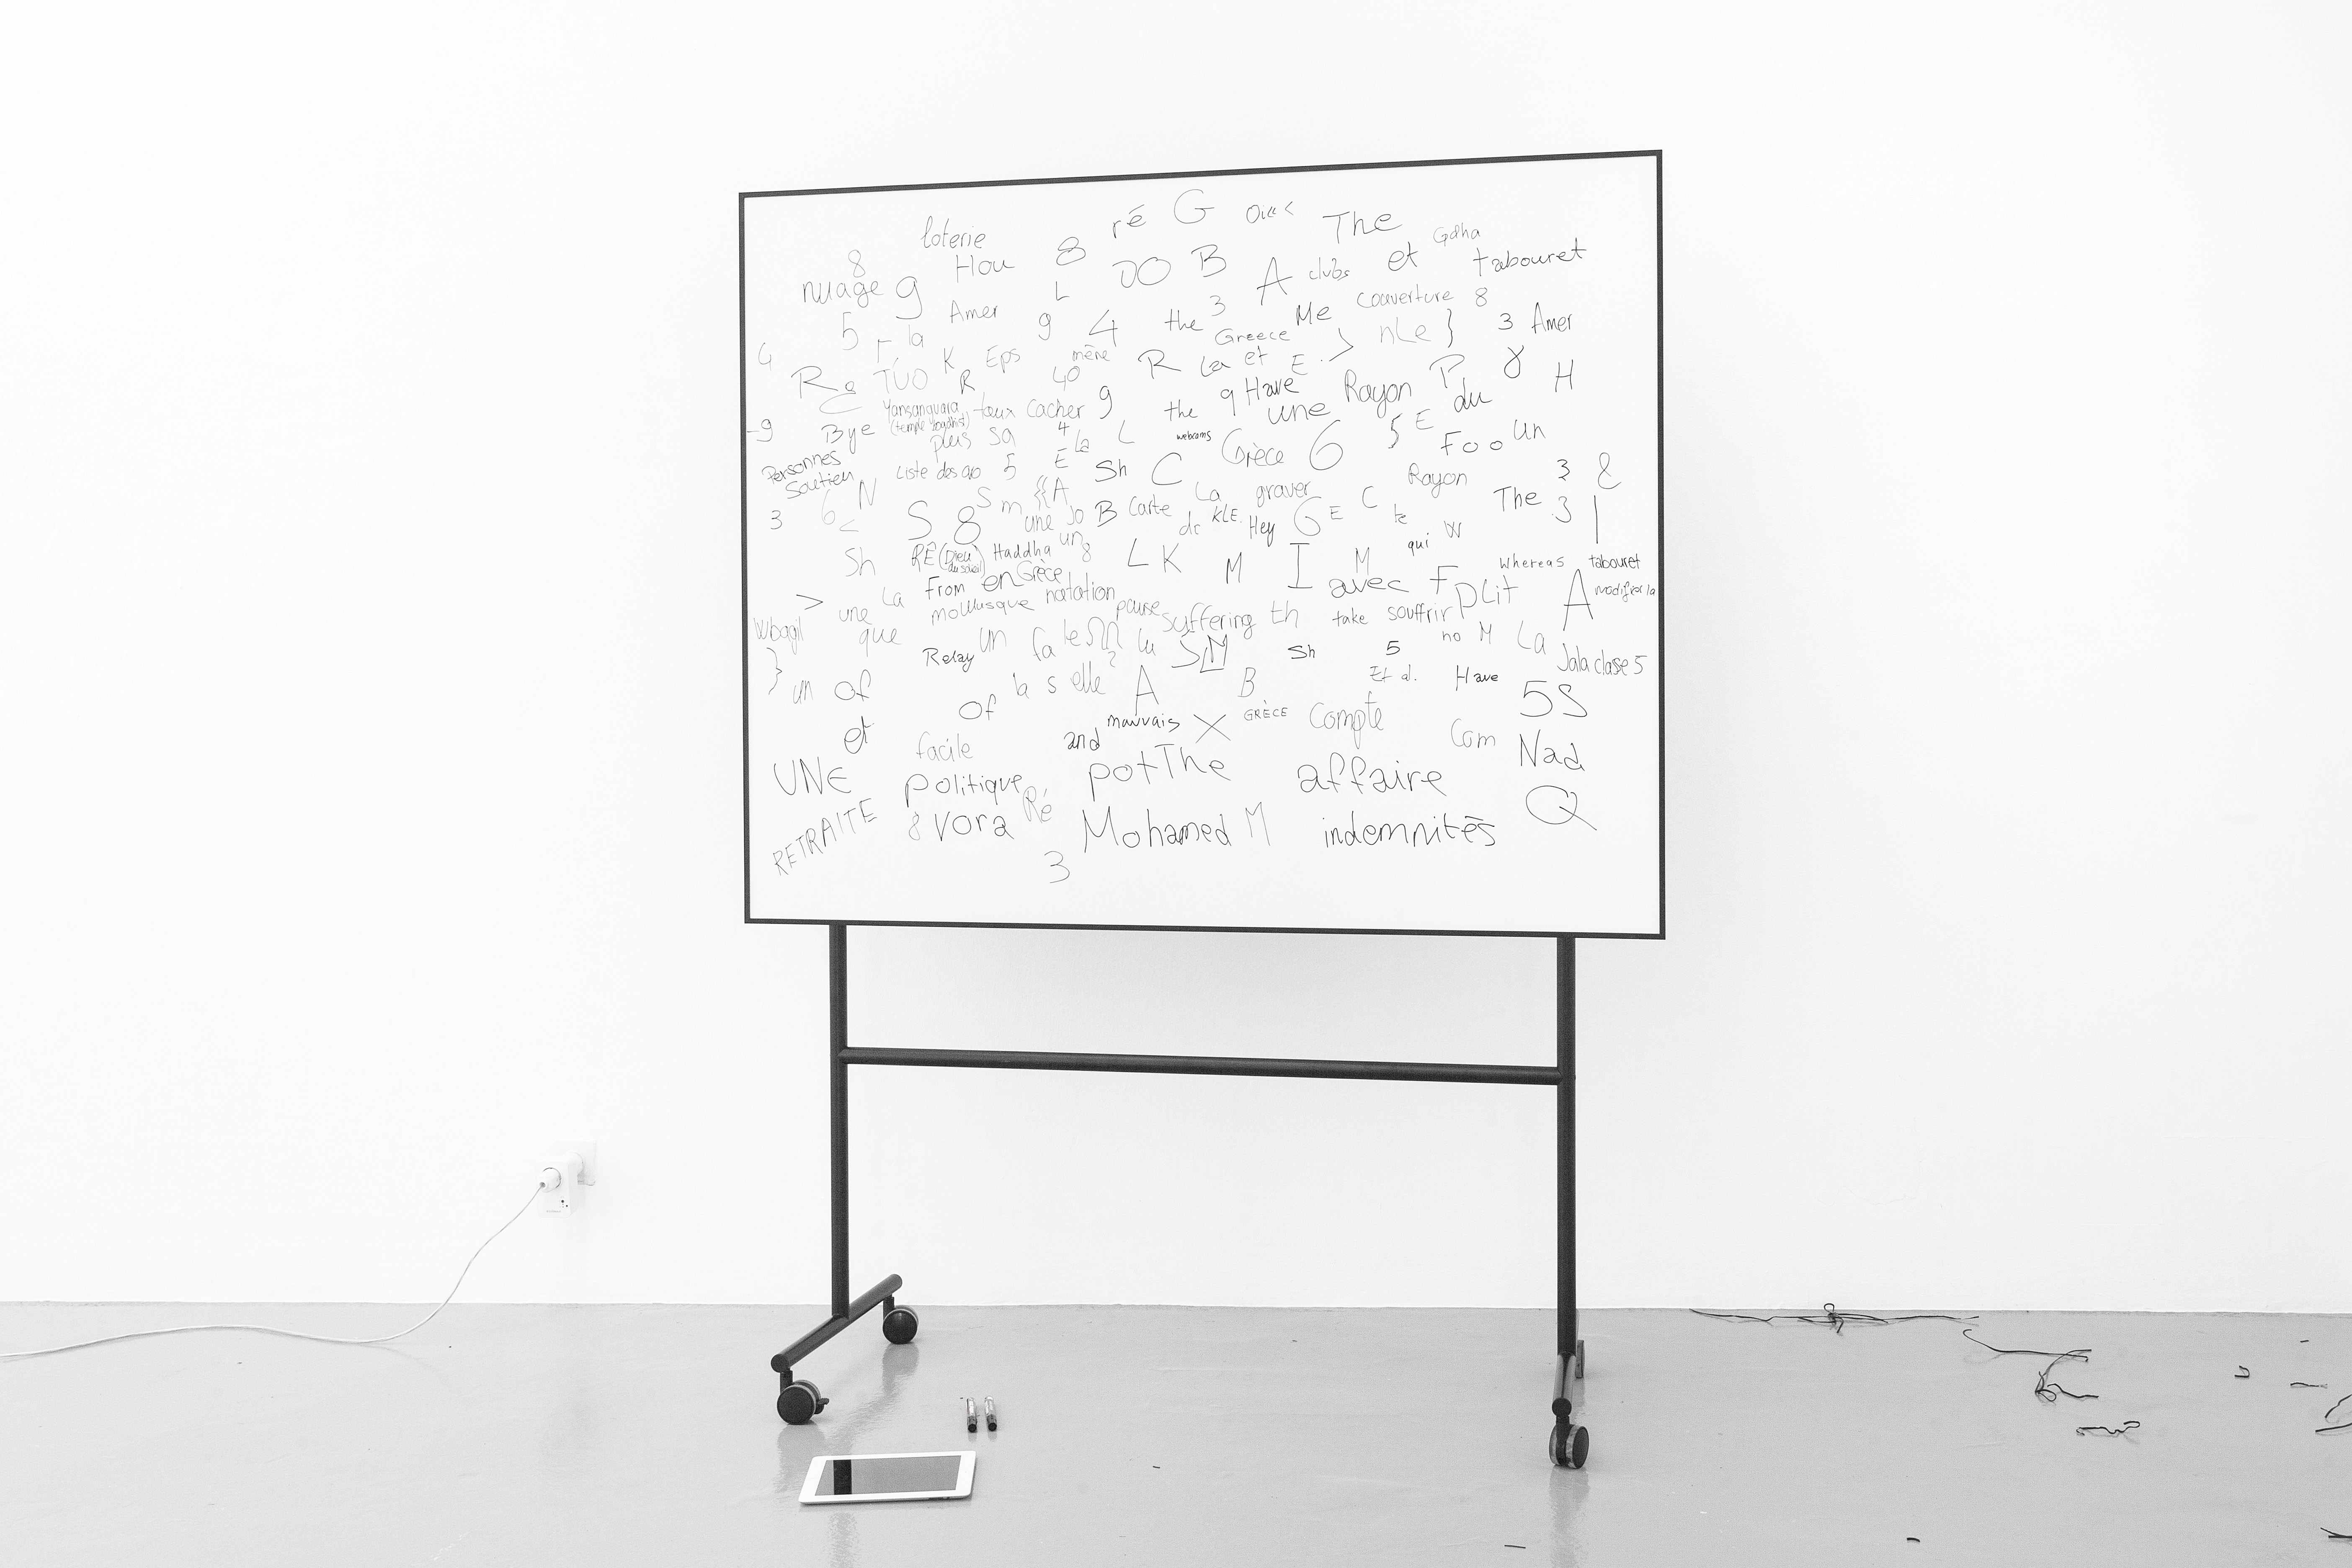 ré G The
loterie 8 Gdha
8 Hou JO B A clubs et tabouret
nuage 9 L 3 Me couverture 8
5 la Amer 9 4 the Greece > nLe } 3 Amer
4 K Eps même R La et E 8
Re TUO R 40 9 Have Rayon P du H
Yansanguara taux cacher 9 the une
-9 Bye plus sa 4 La L webcams Grèce 6 5 E Foo Un
Personnes Liste des 5 E Sh C Rayon 3 &
Soutien N S m {{A La graver C The 3 |
3 6 < S 8 une Jo B Carte de KLE. Hey G E te W
Sh RÊ (Dieu du soleil) Haddha un 8 L K M I M qui Whereas tabouret
From en Grèce avec F plit A modifier la
> une La mollusque natation pause suffering th take souffrir
que un fa le la no M La
Relay ? SM Sh 5 Jala clase 5
} un Of la s elle A B Et al. Have 5S
et Of mauvais X GRÈCE Compte
facile and Com Nad
UNE politique potThe affaire
RETRAITE 8 vora Ré Mohamed M indemnités Q
3